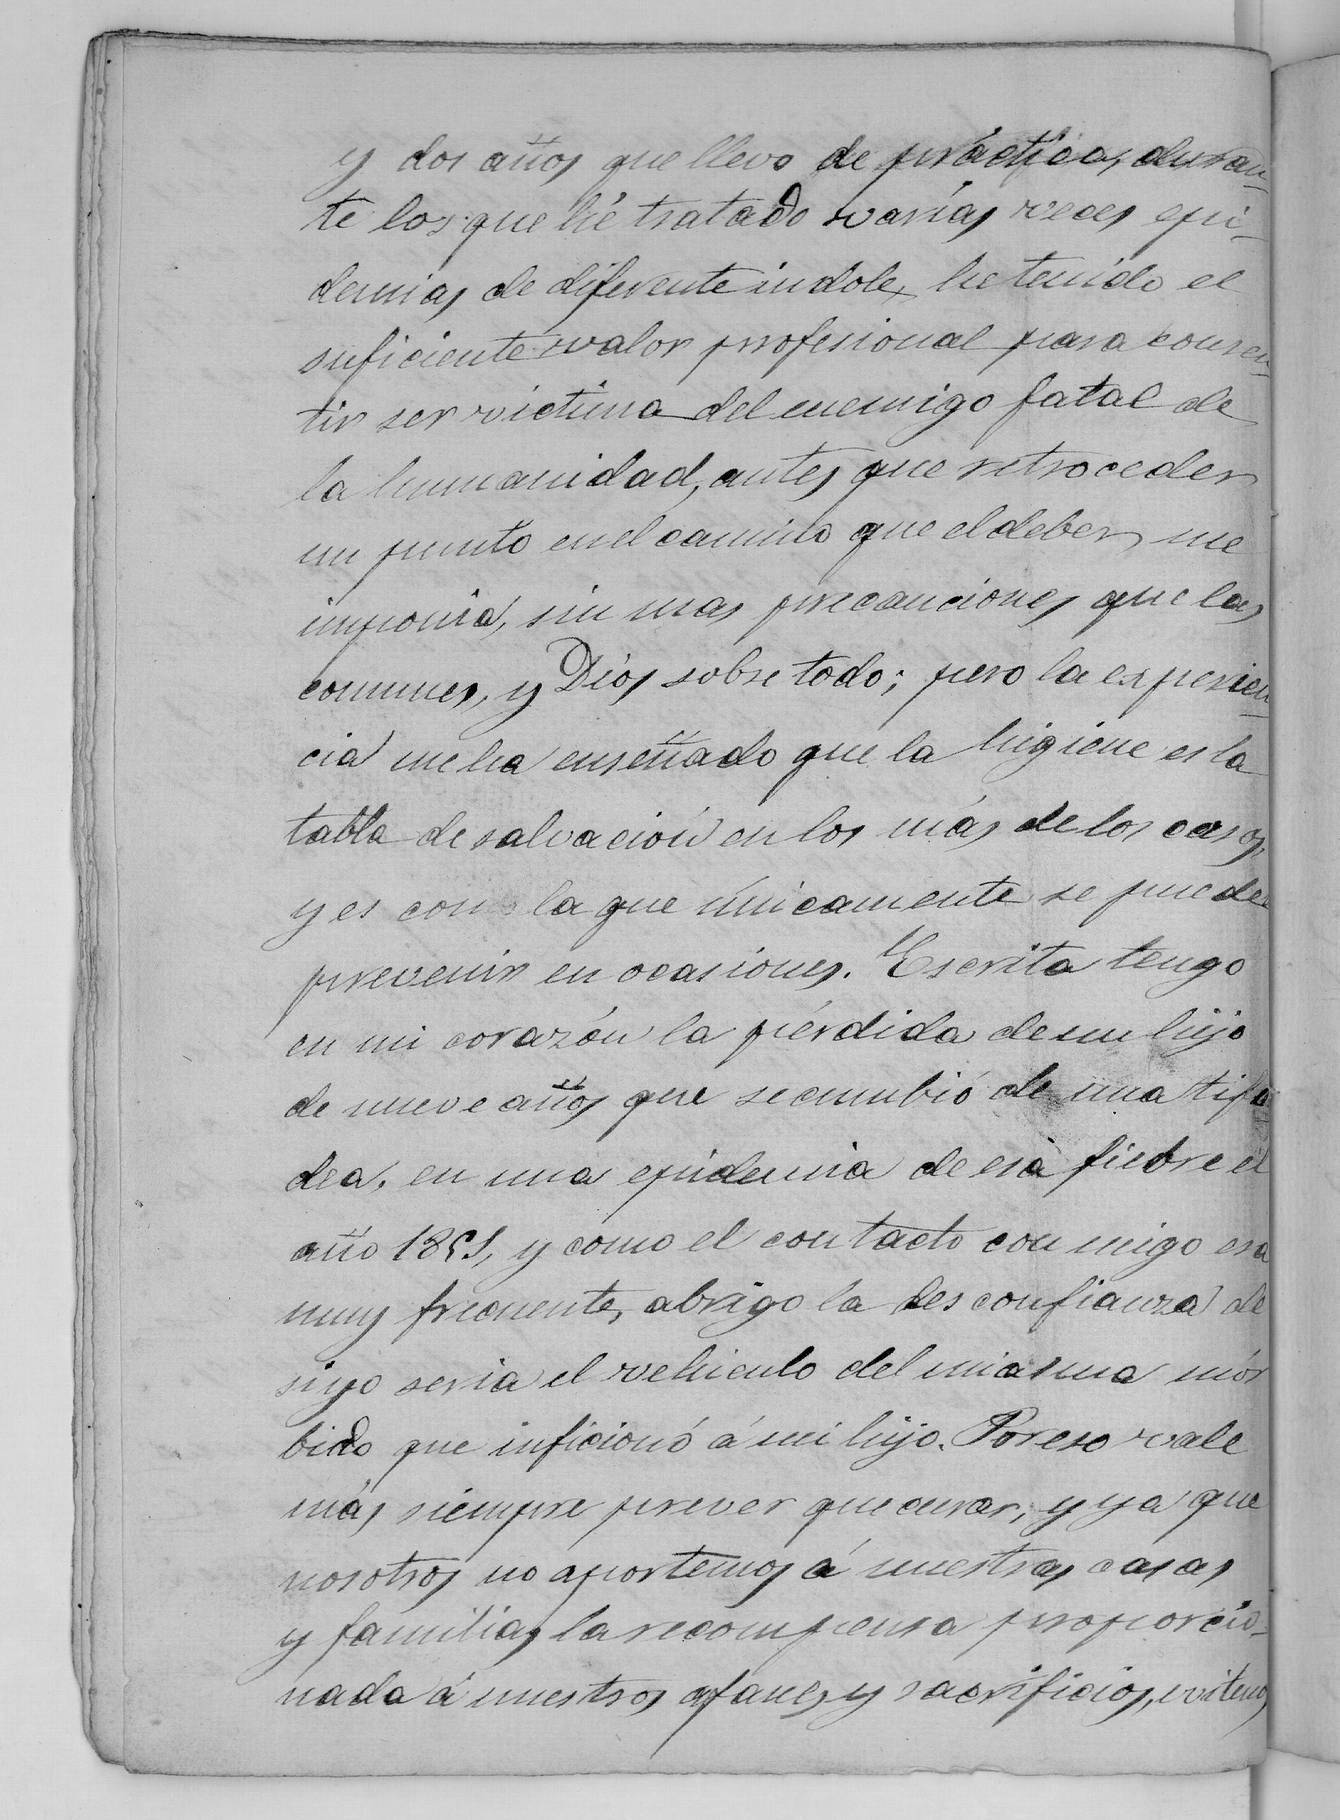 y dos años que llevo de práctica, duran-
te los que hé tratado varias veces epi-
demias de diferente indole, he tenido el
suficiente valor profesional para consen-
tir ser victima del enemigo fatal de
la humanidad, antes que retroceder
un punto en el camino que el deber me
imponia, sin mas precauciones que las
comunes, y Dios sobre todo; pero la experien-
cia me ha enseñado que la higiene es la
tabla de salvación en los más de los casos,
y es con la que únicamente se puede
prevenir en ocasiones. Escrita tengo
en mi corazón la pérdida de un hijo
de nueve años que sucumbió de una tifo
dea, en una epidemia de esa fiebre el
año 1891, y como el contacto con migo era
muy frecuente, abrigo la desconfianza de
si yo seria el vehiculo del miasma mór
bido que inficionó á mi hijo. Por eso vale
más siempre prever que curar, y ya que
nosotros no aportemos á nuestras casas
y familias la recompensa proporcio-
nada á nuestros afanes y sacrificios, evitemos